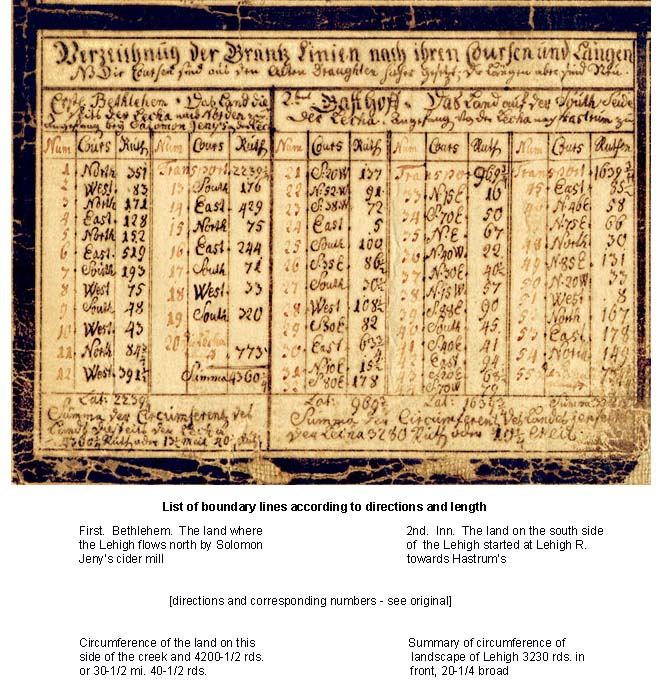 Verzeichnuß der Grantz Linien nach ihren Coursen und Längen
NB Die Coursen sind aus den Alten Draughten hieher gesetzt, die Längen aber sind Neu.
Erste Bethlehem. Das Land die
Seite des Lecha nach Norden zu
Angefang bey Salomon Jenys
2te Gasthoff. Das Land auf der Süth Seide
der Lecha. Angefang von der Lecha nach Hastrum zu
Num Cours Ruth Num Cours Ruth Num Cours Ruth Num Cours Ruth Num Cours Ruthen
1 North 351 Transport 2239 21 S20W 137 Transpo 969 Transport 1639
2 West 83 13 South 176 22 N52W 91 33 N75E 16 45 East 85
3 North 171 14 East 429 23 S38W 72 34 S70E 50 N46E 58
4 East 128 15 North 75 24 East 5 35 N.E 67 N75E 66
5 North 152 16 East 244 25 South 100 36 N40W 22 48 North 30
6 East 519 17 South 71 26 S35E 86½ 37 N30E 40½ N85E 131
7 South 193 18 West 33 27 South 30½ 38 N15W 57 50 N20W 33
8 West 75 19 South 320 28 West 108½ S88E 90 51 West 8
9 South 48 20 773 29 S30E 82 40 South 45 North 167
10 West 43 30 East 63¾ 41 S40E 41 53 East 178
11 North 84½ 31 N30E 15½ East 94 54 North 149
12 West 391½ Summa 4360 S80E 178 S70W 79 55
Lat: 2239 Lat: 969½ Lat: Summa
Summa der Circumferentz des
Landes die Seit des Lecha
4360½ Ruth oder 13½ Meil 40 Ruth
Summa der Circumferentz des Landes jenseit
der Lecha 3280 Ruth oder 10¼ Meil.
List of boundary lines according to directions and length
First. Bethlehem. The land where
the Lehigh flows north by Solomon
Jeny's cider mill
2nd. Inn. The land on the south side
of the Lehigh started at Lehigh R.
towards Hastrum's
[directions and corresponding numbers - see original]
Circumference of the land on this
side of the creek and 4200-1/2 rds.
or 30-1/2 mi. 40-1/2 rds.
Summary of circumference of
landscape of Lehigh 3230 rds. in
front, 20-1/4 broad